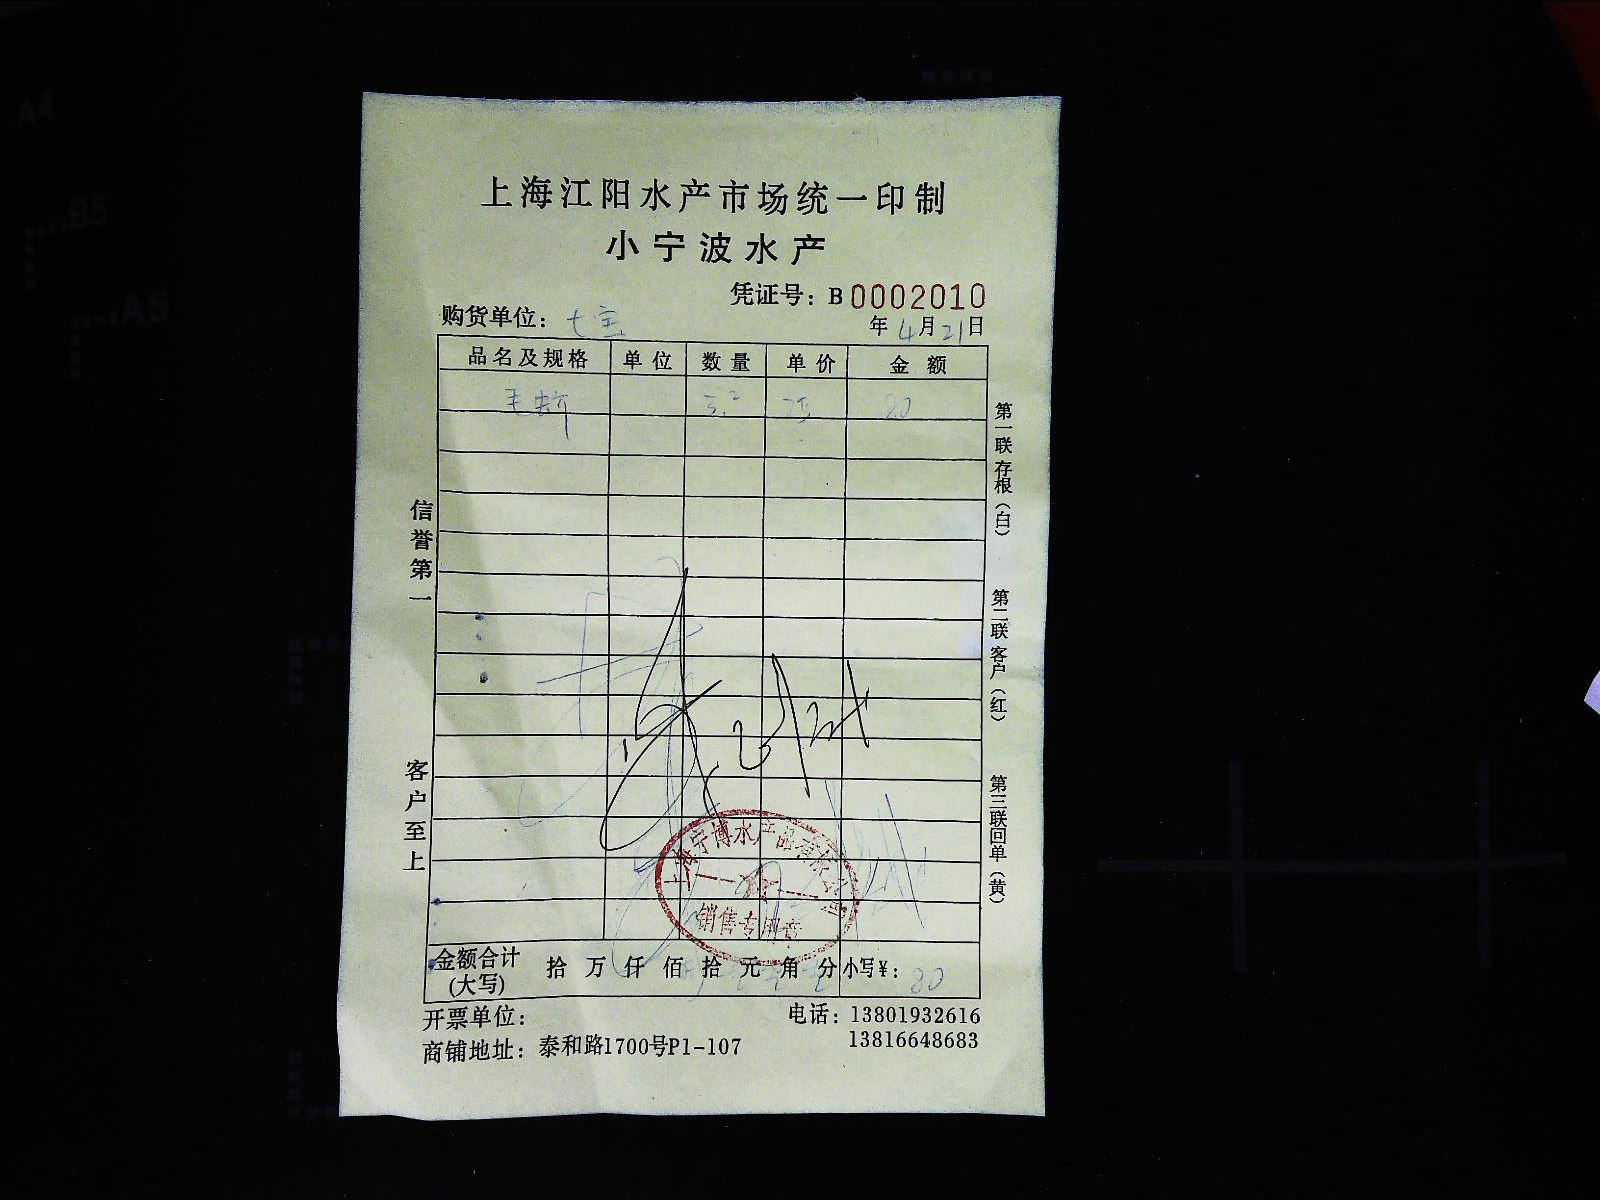 上海江阳水产市场统一印制
小宁波水产
凭证号：B 0002010
购货单位：七宝
年4月21日
品名及规格 单位 数量 单价 金额
毛蚶 三.2 25 80
信誉第一
客户至上
第一联存根（白）
第二联客户（红）
第三联回单（黄）
上海宁博水产品有限公司
销售专用章
金额合计(大写) 拾 万 仟 佰 拾 元 角 分 小写¥：80
开票单位：
电话：13801932616
13816648683
商铺地址：泰和路1700号P1-107
A4
B5
A5